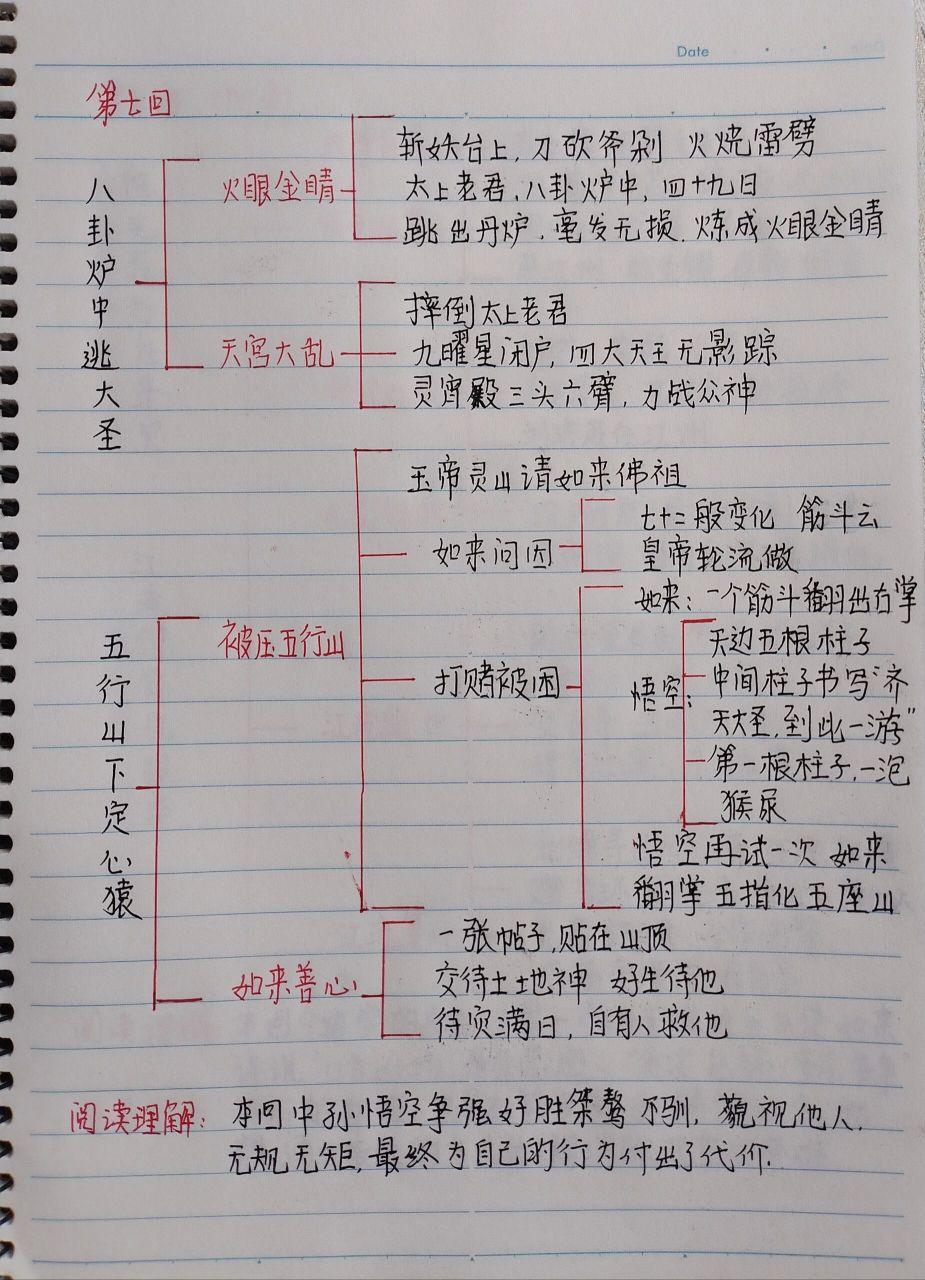 Date
第七回
八卦炉中逃大圣
火眼金睛
斩妖台上,刀砍斧剁 火烧雷劈
太上老君,八卦炉中,四十九日
跳出丹炉,毫发无损,炼成火眼金睛
天宫大乱
摔倒太上老君
九曜星闭户,四大天王无影踪
灵霄殿三头六臂,力战众神
五行山下定心猿
被压五行山
玉帝灵山请如来佛祖
如来问因
七十二般变化 筋斗云
皇帝轮流做
打赌被困
如来:一个筋斗翻出右掌
悟空:
天边五根柱子
中间柱子书写"齐
天大圣,到此一游"
第一根柱子,一泡
猴尿
悟空再试一次 如来
翻掌 五指化五座山
如来善心
一张帖子,贴在山顶
交待土地神 好生待他
待灾满日,自有人救他
阅读理解:本回中孙悟空争强好胜桀骜不驯,藐视他人,
无规无矩,最终为自己的行为付出了代价.